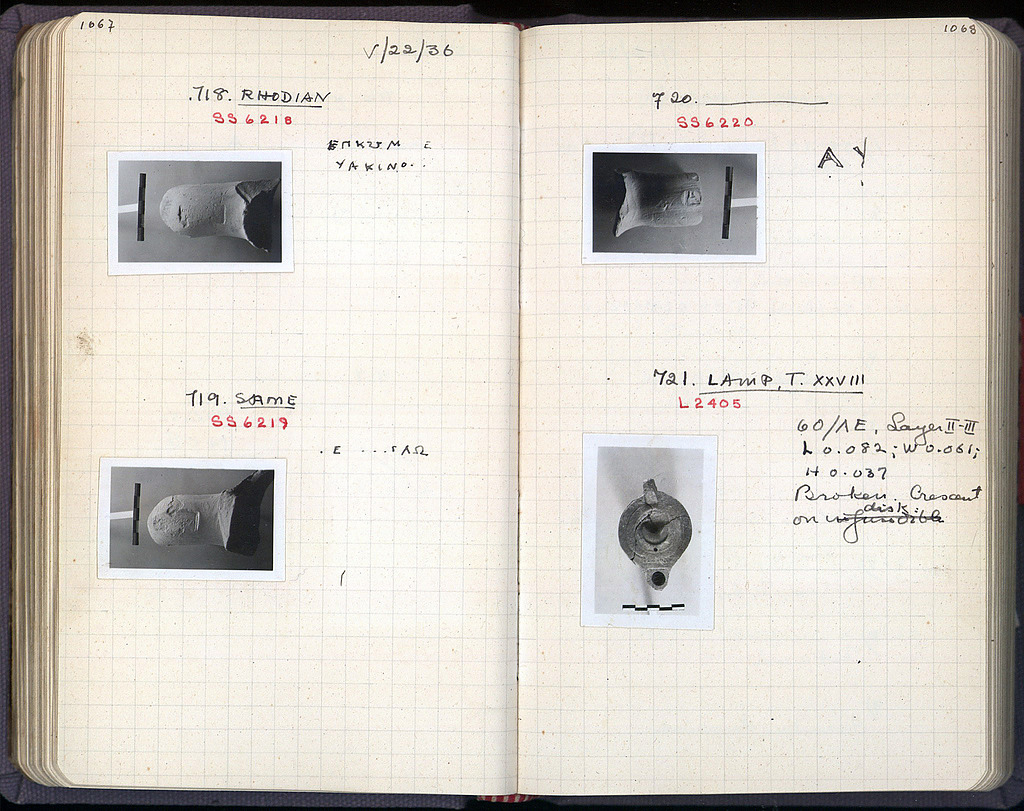 1067
V/22/36
718. RHODIAN
SS 6218
ΕΠΚΥΜ Ε
ΥΑΚΙΝΟ..
719. SAME
SS 6219
.Ε ...ΓΛΩ
1068
720.
SS 6220
Α Υ
721. LAMP, T. XXVIII
L 2405
60/ΛΕ, Layer II-III
L 0.082; W 0.061;
H 0.037
Broken. Crescent
disk.
on infundible